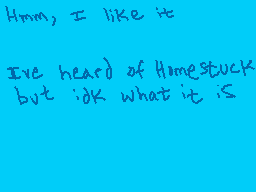 Hmm, I like it
Ive heard of Homestuck
but idk what it is